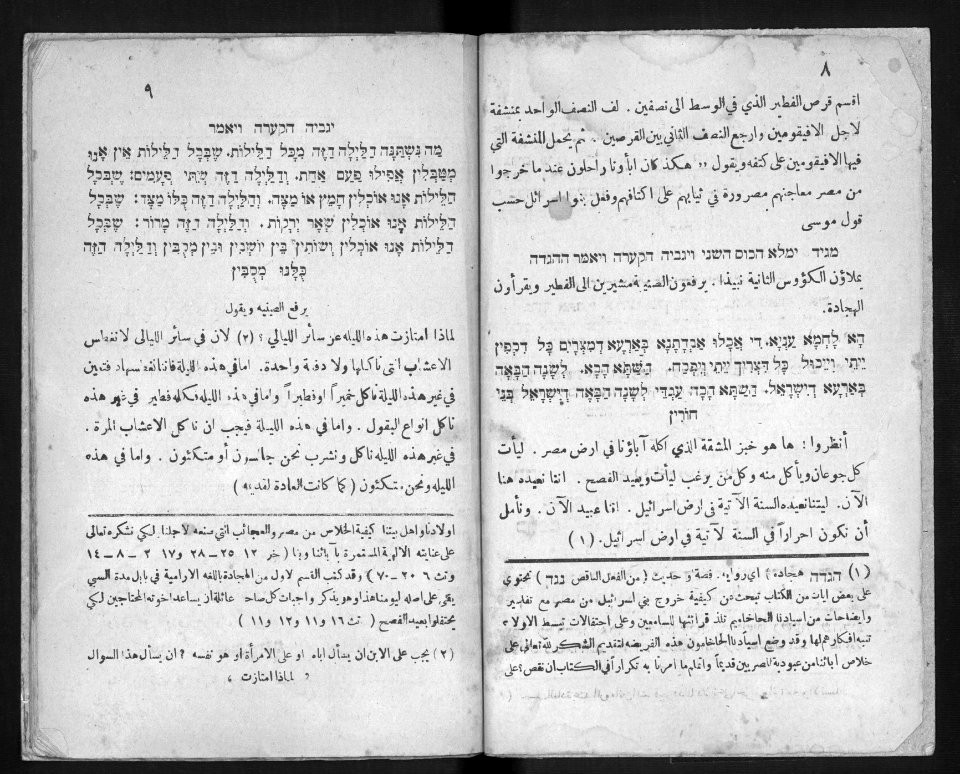 ٨
اقسم قرص الفطير الذي في الوسط الى نصفين . لف النصف الواحد بمنشفة
لاجل الافيقومين وارجع النصف الثاني بين القرصين . ثم يحمل المنشفة التي
فيها الافيقومين على كتفه ويقول ,, هكذ كان اباؤنا راحلون عند ما خرجوا
من مصر معاجنهم مصرورة في ثيابهم على اكتافهم وفعل بنوا اسرائيل حسب
قول موسى
מגיד ימלא הכוס השני ויגביה הקערה ויאמר ההגדה
يملاؤن الكؤوس الثانية نبيذا . يرفعون الصنية مشيرين الى الفطير ويقرأون
الهجادة.
הָא לַחְמָא עַנְיָא. דִי אֲכָלוּ אַבְהָתָנָא בְּאַרְעָא דְמִצְרַיִם כָּל דִכְפִין
יֵיתֵי וְיֵיכוּל כָּל דִצְרִיךְ יֵיתֵי וְיִפְסַח. הָשַׁתָּא הָכָא. לְשָׁנָה הַבָּאָה
בְּאַרְעָא דְיִשְׂרָאֵל. הָשַׁתָּא הָכָה עַבְדֵי לְשָׁנָה הַבָּאָה דְיִשְׂרָאֵל בְּנֵי
חוֹרִין
أنظروا : ها هو خبز المشقة الذي اكله آباؤنا في ارض مصر . ليأت
كل جوعان ويأكل منه وكل من يرغب ليأت ويعيد الفصح . اننا نعيده هنا
الآن . ليتنا نعيده السنة الآتية في ارض اسرائيل . اننا عبيد الآن . ونأمل
أن نكون احراراً في السنة الآتية في ارض اسرائيل. (١)
(١) הגדה هجاده اي رواية. قصة او حديث (من الفعل الناقص נגד) تحتوي
على بعض ايات من الكتاب تبحث عن كيفية خروج بني اسرائيل من مصر مع تفاسير
وايضاحات من اسيادنا الحاخاميم تلذ قرائتها للسامعين وعلى احتفالات تبسط الاولاد
تنبه افكارهم لها وقد وضع اسيادنا الحاخامون هذه الفريضه لتقديم الشكر لله تعالى على
خلاص أبائنا من عبودية المصريين قديماً واتمام ما امرنا به تكراراً في الكتاب ان نقص على
٩
יגביה הקערה ויאמר
מַה נִּשְׁתַּנָּה הַלַּיְלָה הַזֶּה מִכָּל הַלֵּילוֹת. שֶׁבְּכָל הַלֵּילוֹת אֵין אָנוּ
מְטַבְּלִין אֲפִילוּ פַּעַם אַחַת. וְהַלַּיְלָה הַזֶּה שְׁתֵּי פְעָמִים: שֶׁבְּכָל
הַלֵּילוֹת אָנוּ אוֹכְלִין חָמֵץ אוֹ מַצָּה. וְהַלַּיְלָה הַזֶּה כֻּלּוֹ מַצָּה: שֶׁבְּכָל
הַלֵּילוֹת אָנוּ אוֹכְלִין שְׁאָר יְרָקוֹת. וְהַלַּיְלָה הַזֶּה מָרוֹר: שֶׁבְּכָל
הַלֵּילוֹת אָנוּ אוֹכְלִין וְשׁוֹתִין בֵּין יוֹשְׁבִין וּבֵין מְסֻבִּין וְהַלַּיְלָה הַזֶּה
כֻּלָּנוּ מְסֻבִּין
يرفع الصينيه ويقول
لماذا امتازت هذه الليله عن سائر الليالي ؟ (٢) لان في سائر الليالى لا نغمس
الاعشاب التي ناكلها ولا دفة واحدة. اما في هذه الليله فاننا نغمسها دفتين
في غير هذه الليلة ناكل خميراً او فطيراً واما في هذه الليله فكله فطير في غير هذه
ناكل انواع البقول . واما في هذه الليلة فيجب ان ناكل الاعشاب المرة .
في غير هذه الليله ناكل ونشرب نحن جالسون أو متكئون . واما في هذه
الليله ونحن متكئون (كما كانت العادة لقديمه)
اولادنا واهل بيتنا كيفية الخلاص من مصر والعجائب التي صنعه لاجلنا. لكي نشكره تعالى
على عنايته الالهية المستمرة بآبائنا وبنا (خر ١٢ ٢٥-٢٨ و١٧ ٣-٨-١٤
وتث ٦ ٢٠-٧٠) وقد كتب القسم الاول من الهجادة باللغه الارامية في بابل مدة السبي
بقي على اصله ليومنا هذا وهو يذكر واجبات كل صاحب عائلة ان يساعد اخوته المحتاجين لكي
يحتفلوا بعيد الفصح (تث ١٦ و١١ و١٢ و١١)
(٢) يجب على الابن ان يسأل اباه او على الامرأة او هو نفسه ؟ ان يسأل هذا السوال
, لماذا امتازت ,